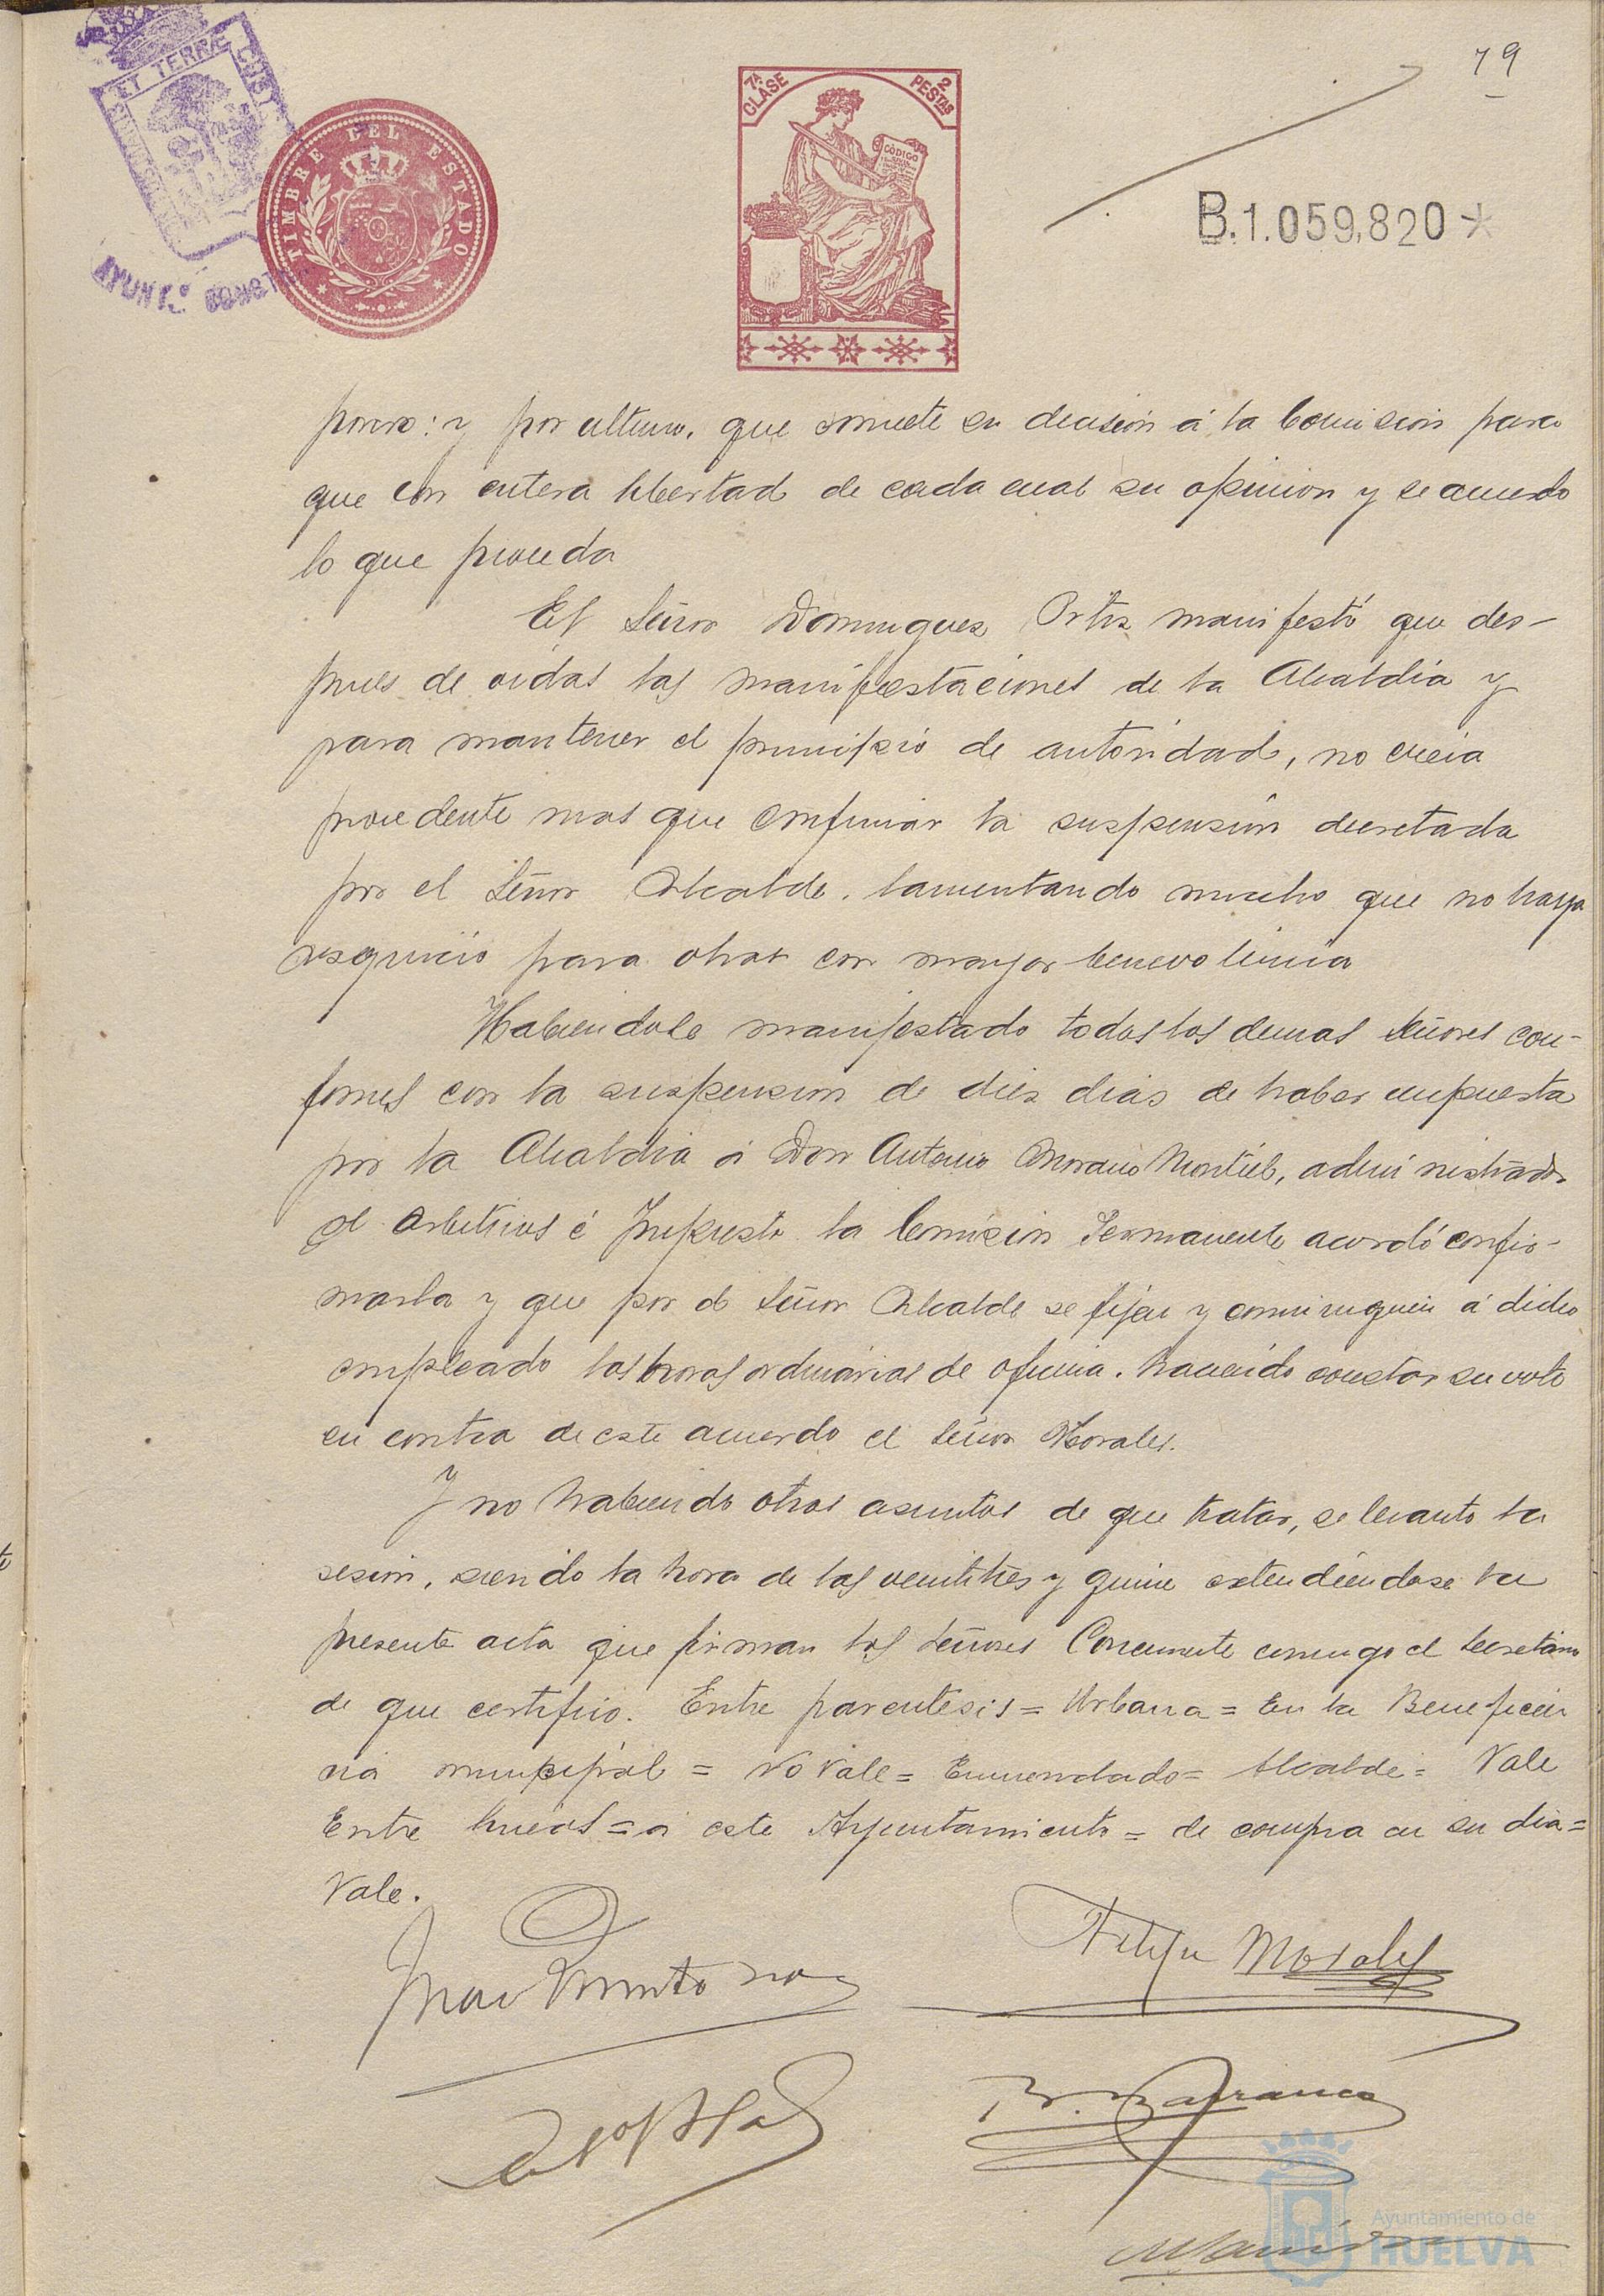 79
ET TERRÆ CUST
AYUNT.º CONST
TIMBRE DEL ESTADO
7ª CLASE
2 PESTAS
CÓDIGO
B.1.059,820*
y por ultimo, que somete su decision á la Comision para
que con entera libertad de cada cual su opinion y se acuerde
lo que proceda
El Señor Dominguez Ortiz manifestó que des-
pues de oidas las manifestaciones de la Alcaldia y
para mantener el principio de autoridad, no creia
procedente mas que confirmar la suspensión decretada
por el Señor Alcalde, lamentando mucho que no haya
resquicio para obrar con mayor benevolencia
Habiendole manifestado todos los demas Señores con-
formes con la suspension de diez dias de haber impuesta
por la Alcaldia á Don Antonio Moreno Montiel, administrador
de Arbitrios é Impuesto la Comision Permanente acordó confir-
marla y que por el Señor Alcalde se fijen y comuniquen á dicho
empleado las horas ordinarias de oficina, haciendo constar su voto
en contra de este acuerdo el Señor Morales.
Y no habiendo otros asuntos de que tratar, se levanto la
sesion, siendo la hora de las veintitres y quince extendiendose la
presente acta que firman los Señores Concurrente conmigo el Secretario
de que certifico. Entre parentesis = Urbana = En la Beneficen
cia municipal = No vale = Enmendado = Alcalde = Vale
Entre lineas = a este Ayuntamiento = de compra en su dia =
Vale.
Felipe Morales
Ayuntamiento de
HUELVA